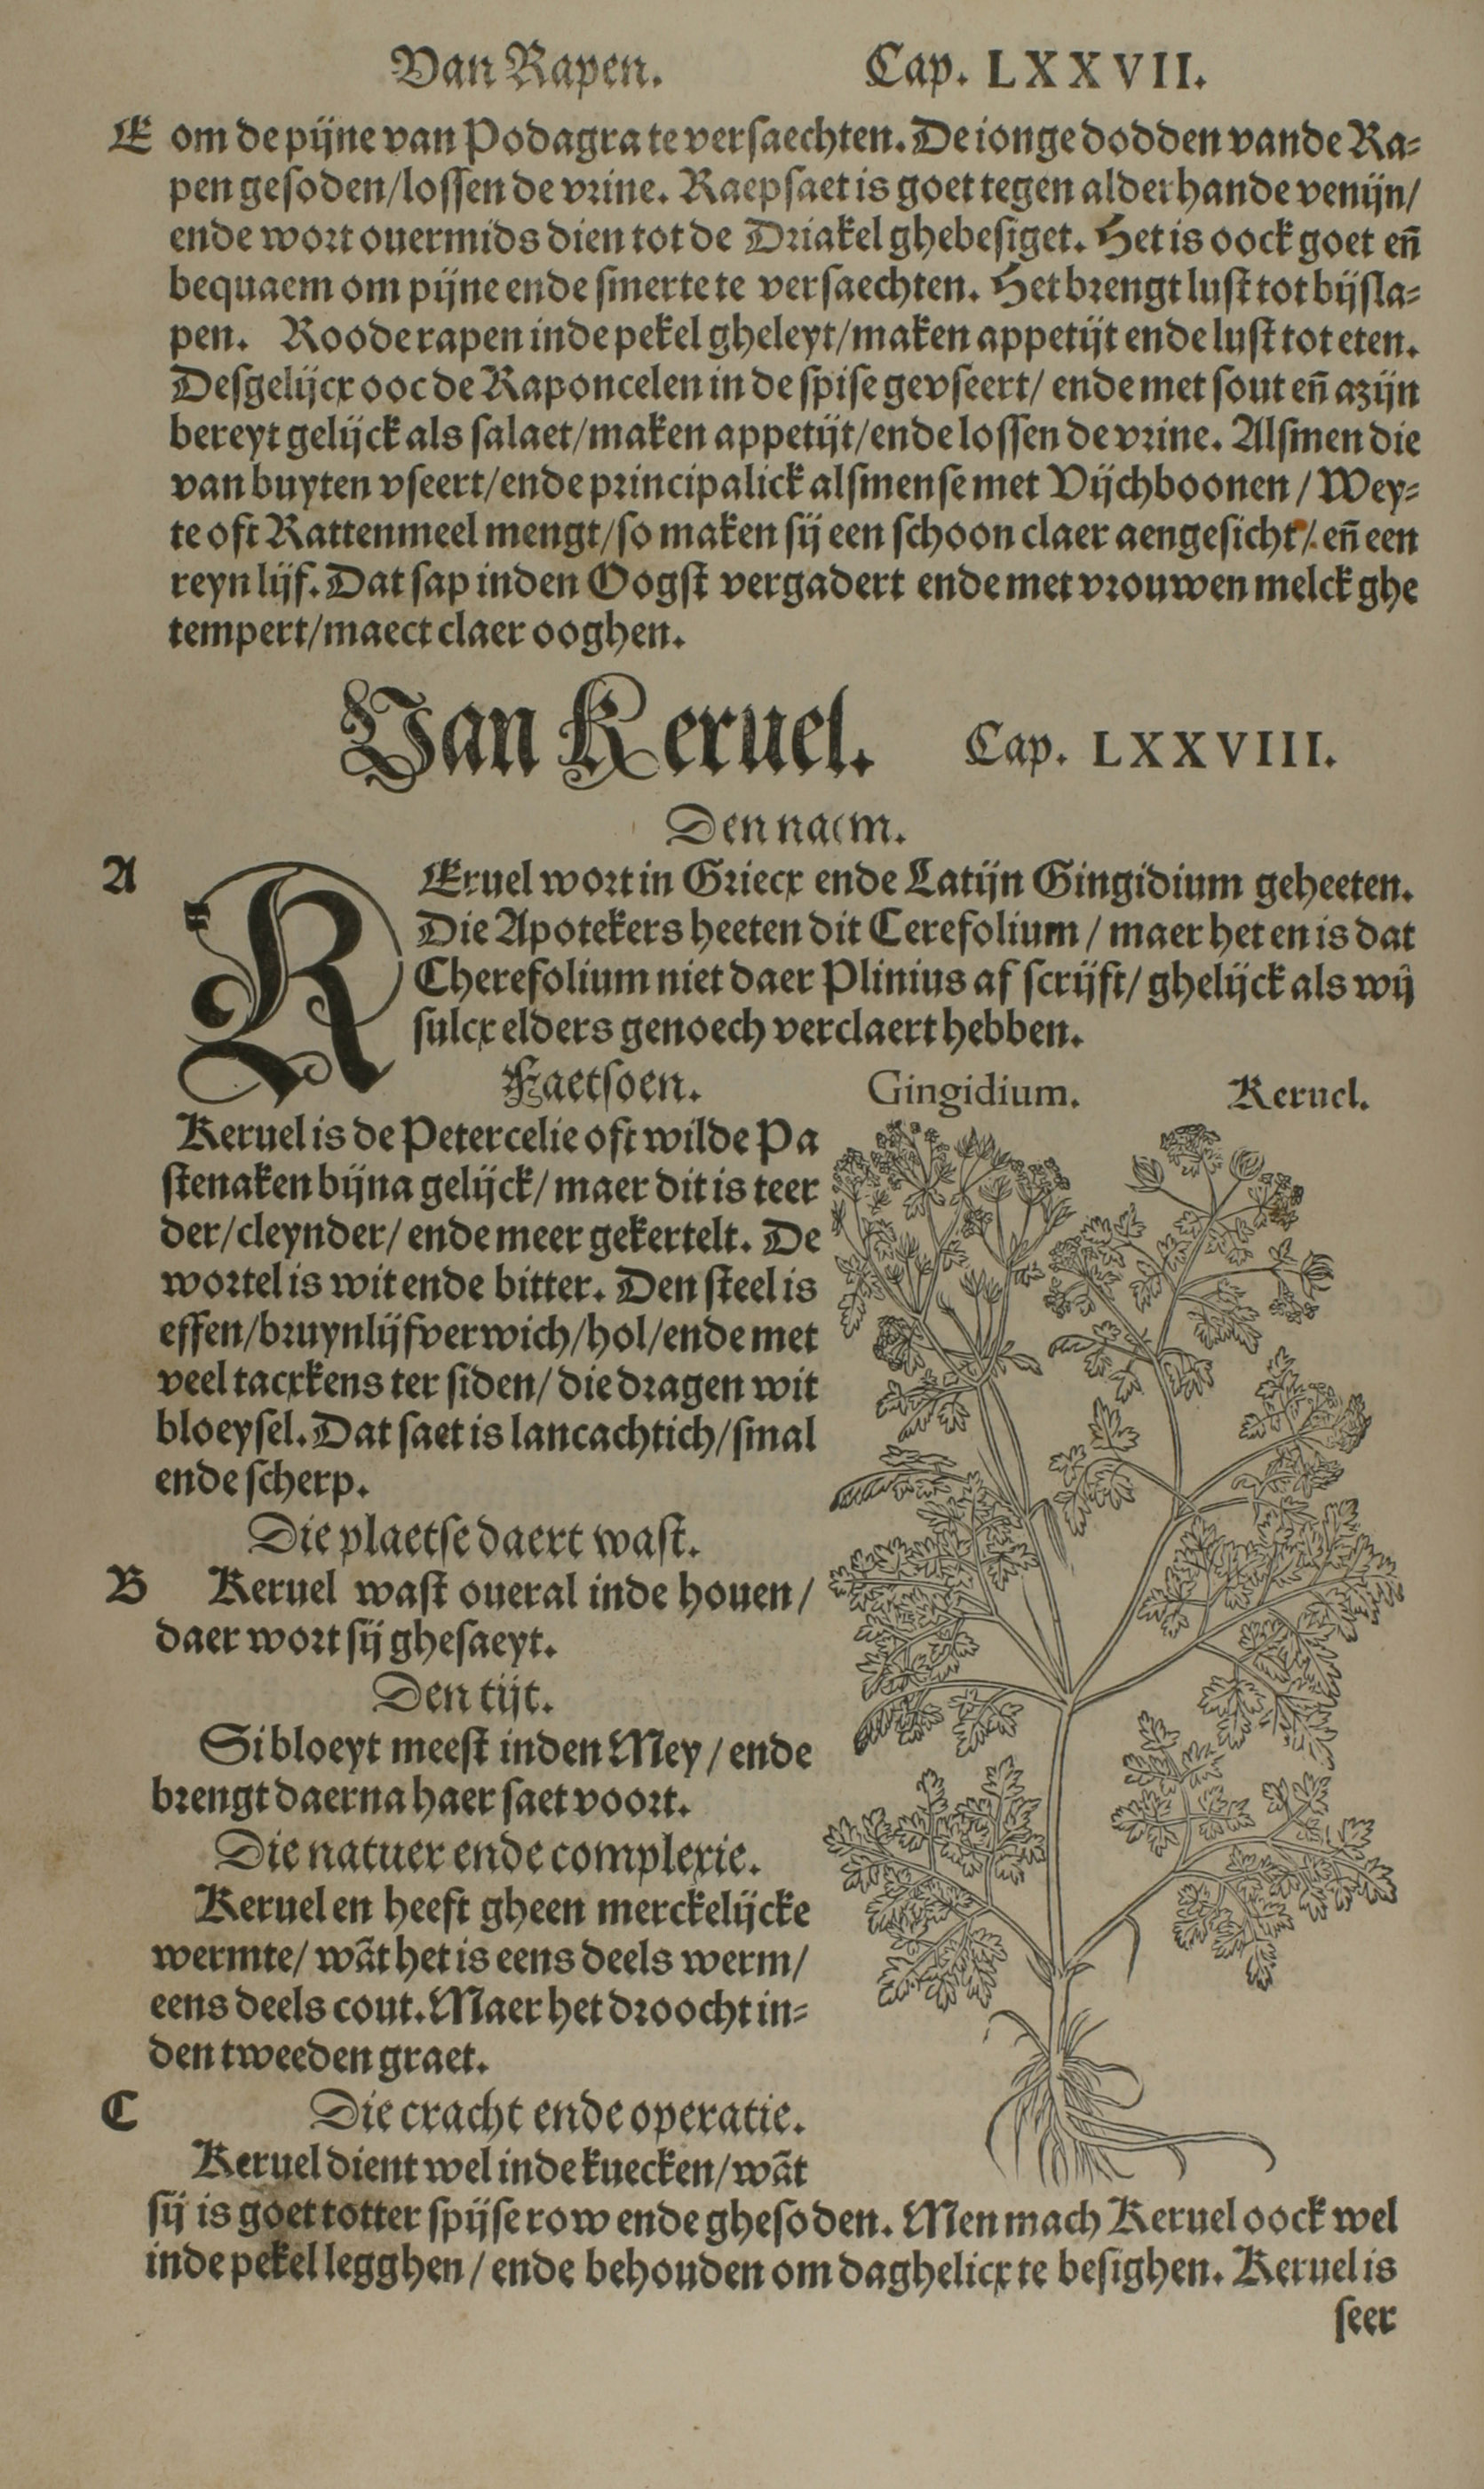 Van Rapen. Cap. LXXVII.
E om de pijne van Podagra te versaechten. De ionge dodden vande Ra-
pen gesoden/lossen de vrine. Raepsaet is goet tegen alderhande venijn/
ende wort ouermids dien tot de Driakel ghebesiget. Het is oock goet eñ
bequaem om pijne ende smerte te versaechten. Het brengt lust tot bijsla-
pen. Roode rapen inde pekel gheleyt/maken appetijt ende lust tot eten.
Desgelijcx ooc de Raponcelen in de spise gevseert/ ende met sout eñ azijn
bereyt gelijck als salaet/maken appetijt/ende lossen de vrine. Alsmen die
van buyten vseert/ende principalick alsmense met Vijchboonen / Wey-
te oft Rattenmeel mengt/so maken sij een schoon claer aengesicht/ eñ een
reyn lijf. Dat sap inden Oogst vergadert ende met vrouwen melck ghe
tempert/maect claer ooghen.
Van Keruel. Cap. LXXVIII.
Den naem.
A
KEruel wort in Griecx ende Latijn Gingidium geheeten.
Die Apotekers heeten dit Cerefolium / maer het en is dat
Cherefolium niet daer Plinius af scrijft/ ghelijck als wij
sulcx elders genoech verclaert hebben.
Faetsoen.
Gingidium. Keruel.
Keruel is de Petercelie oft wilde Pa
stenaken bijna gelijck/ maer dit is teer
der/cleynder/ ende meer gekertelt. De
wortel is wit ende bitter. Den steel is
effen/bruynlijfverwich/hol/ende met
veel tacxkens ter siden/ die dragen wit
bloeysel. Dat saet is lancachtich/smal
ende scherp.
Die plaetse daert wast.
B Keruel wast oueral inde houen /
daer wort sij ghesaeyt.
Den tijt.
Si bloeyt meest inden Mey / ende
brengt daerna haer saet voort.
Die natuer ende complexie.
Keruel en heeft gheen merckelijcke
wermte/ wãt het is eens deels werm/
eens deels cout. Maer het droocht in-
den tweeden graet.
C Die cracht ende operatie.
Keruel dient wel inde kuecken/wãt
sij is goet totter spijse row ende ghesoden. Men mach Keruel oock wel
inde pekel legghen / ende behouden om daghelicx te besighen. Keruel is
seer